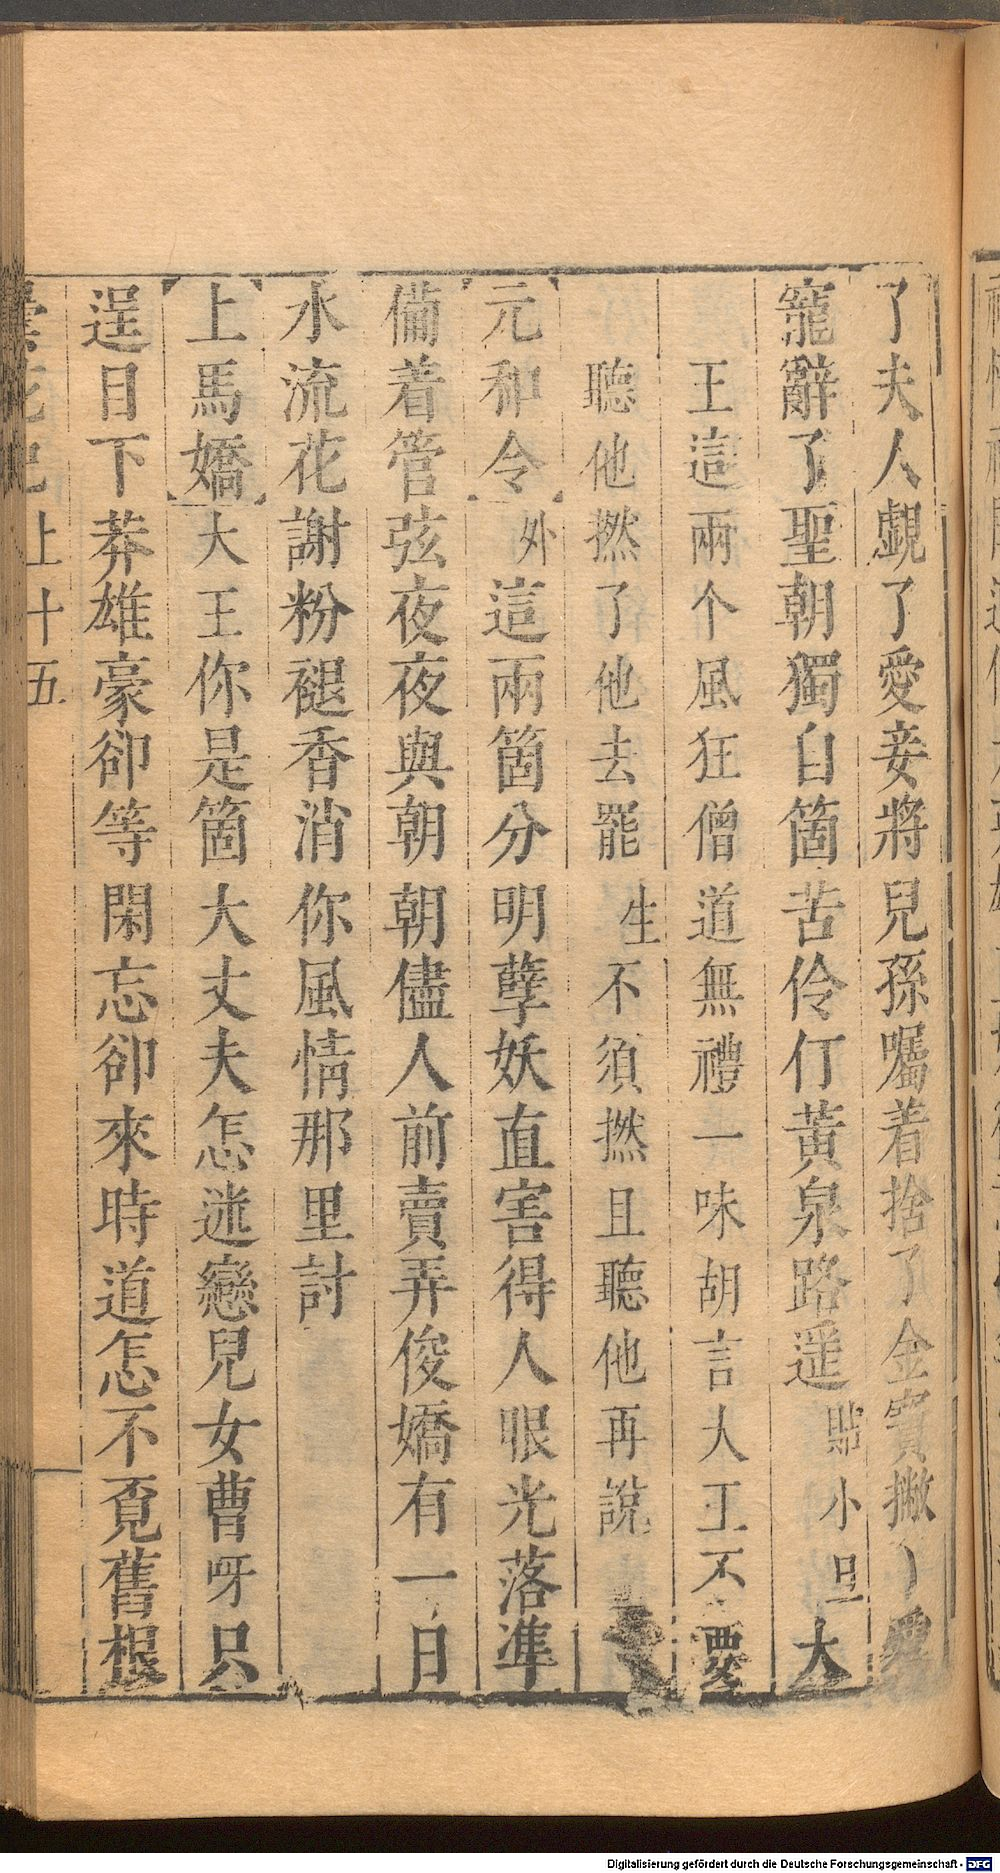 了夫人覷了愛妾將兒孫囑着捨了金寶撇了
寵辭了聖朝獨自箇苦伶仃黃泉路遥貼小旦大
王這兩个風狂僧道無禮一味胡言大王不要
聽他撚了他去罷生不須撚且聽他再說
元和令外這兩箇分明孽妖直害得人眼光落準
備着管弦夜夜與朝朝儘人前賣弄俊嬌有一日
水流花謝粉褪香消你風情那里討
上馬嬌大王你是箇大丈夫怎迷戀兒女曹呀只
逞目下莽雄豪卻等閑忘卻來時道怎不覔舊根
曇花記上十五
Digitalisierung gefördert durch die Deutsche Forschungsgemeinschaft - DFG